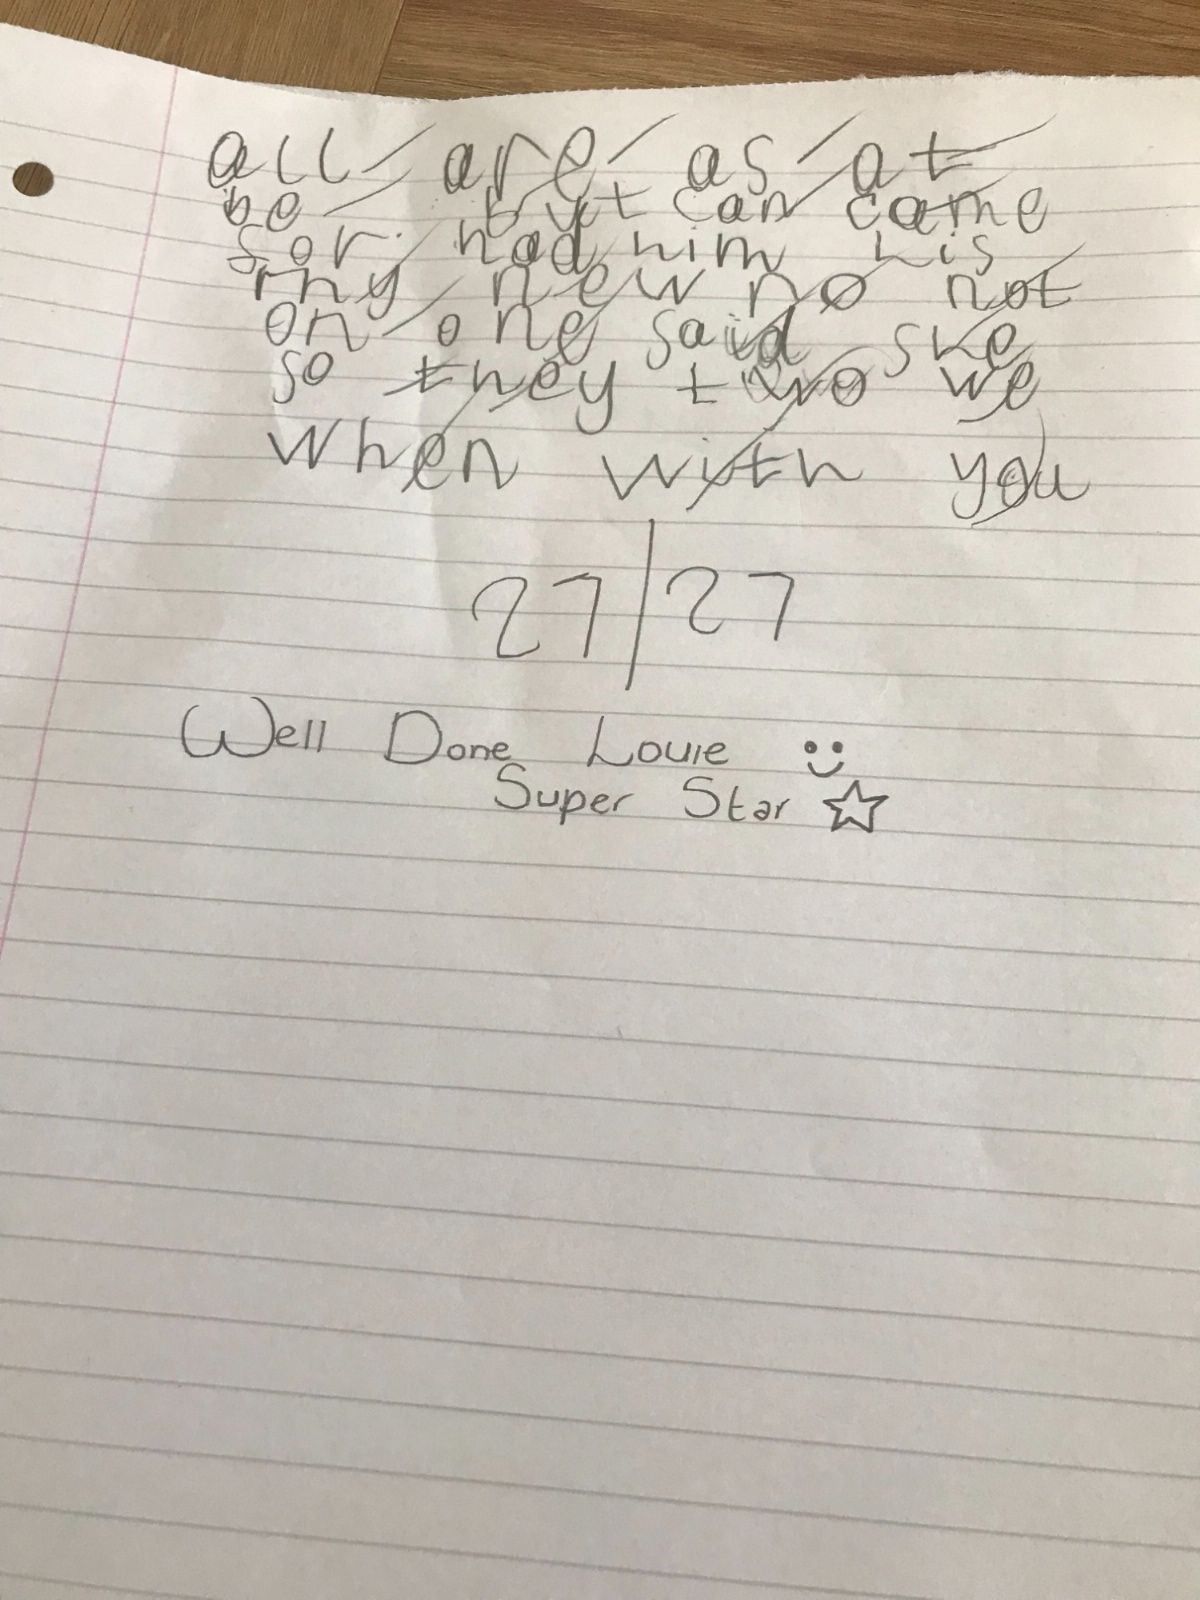 all are as at
be but can came
for had him his
my new no not
on one said she
so they two we
when with you
27/27
Well Done Louie
Super Star